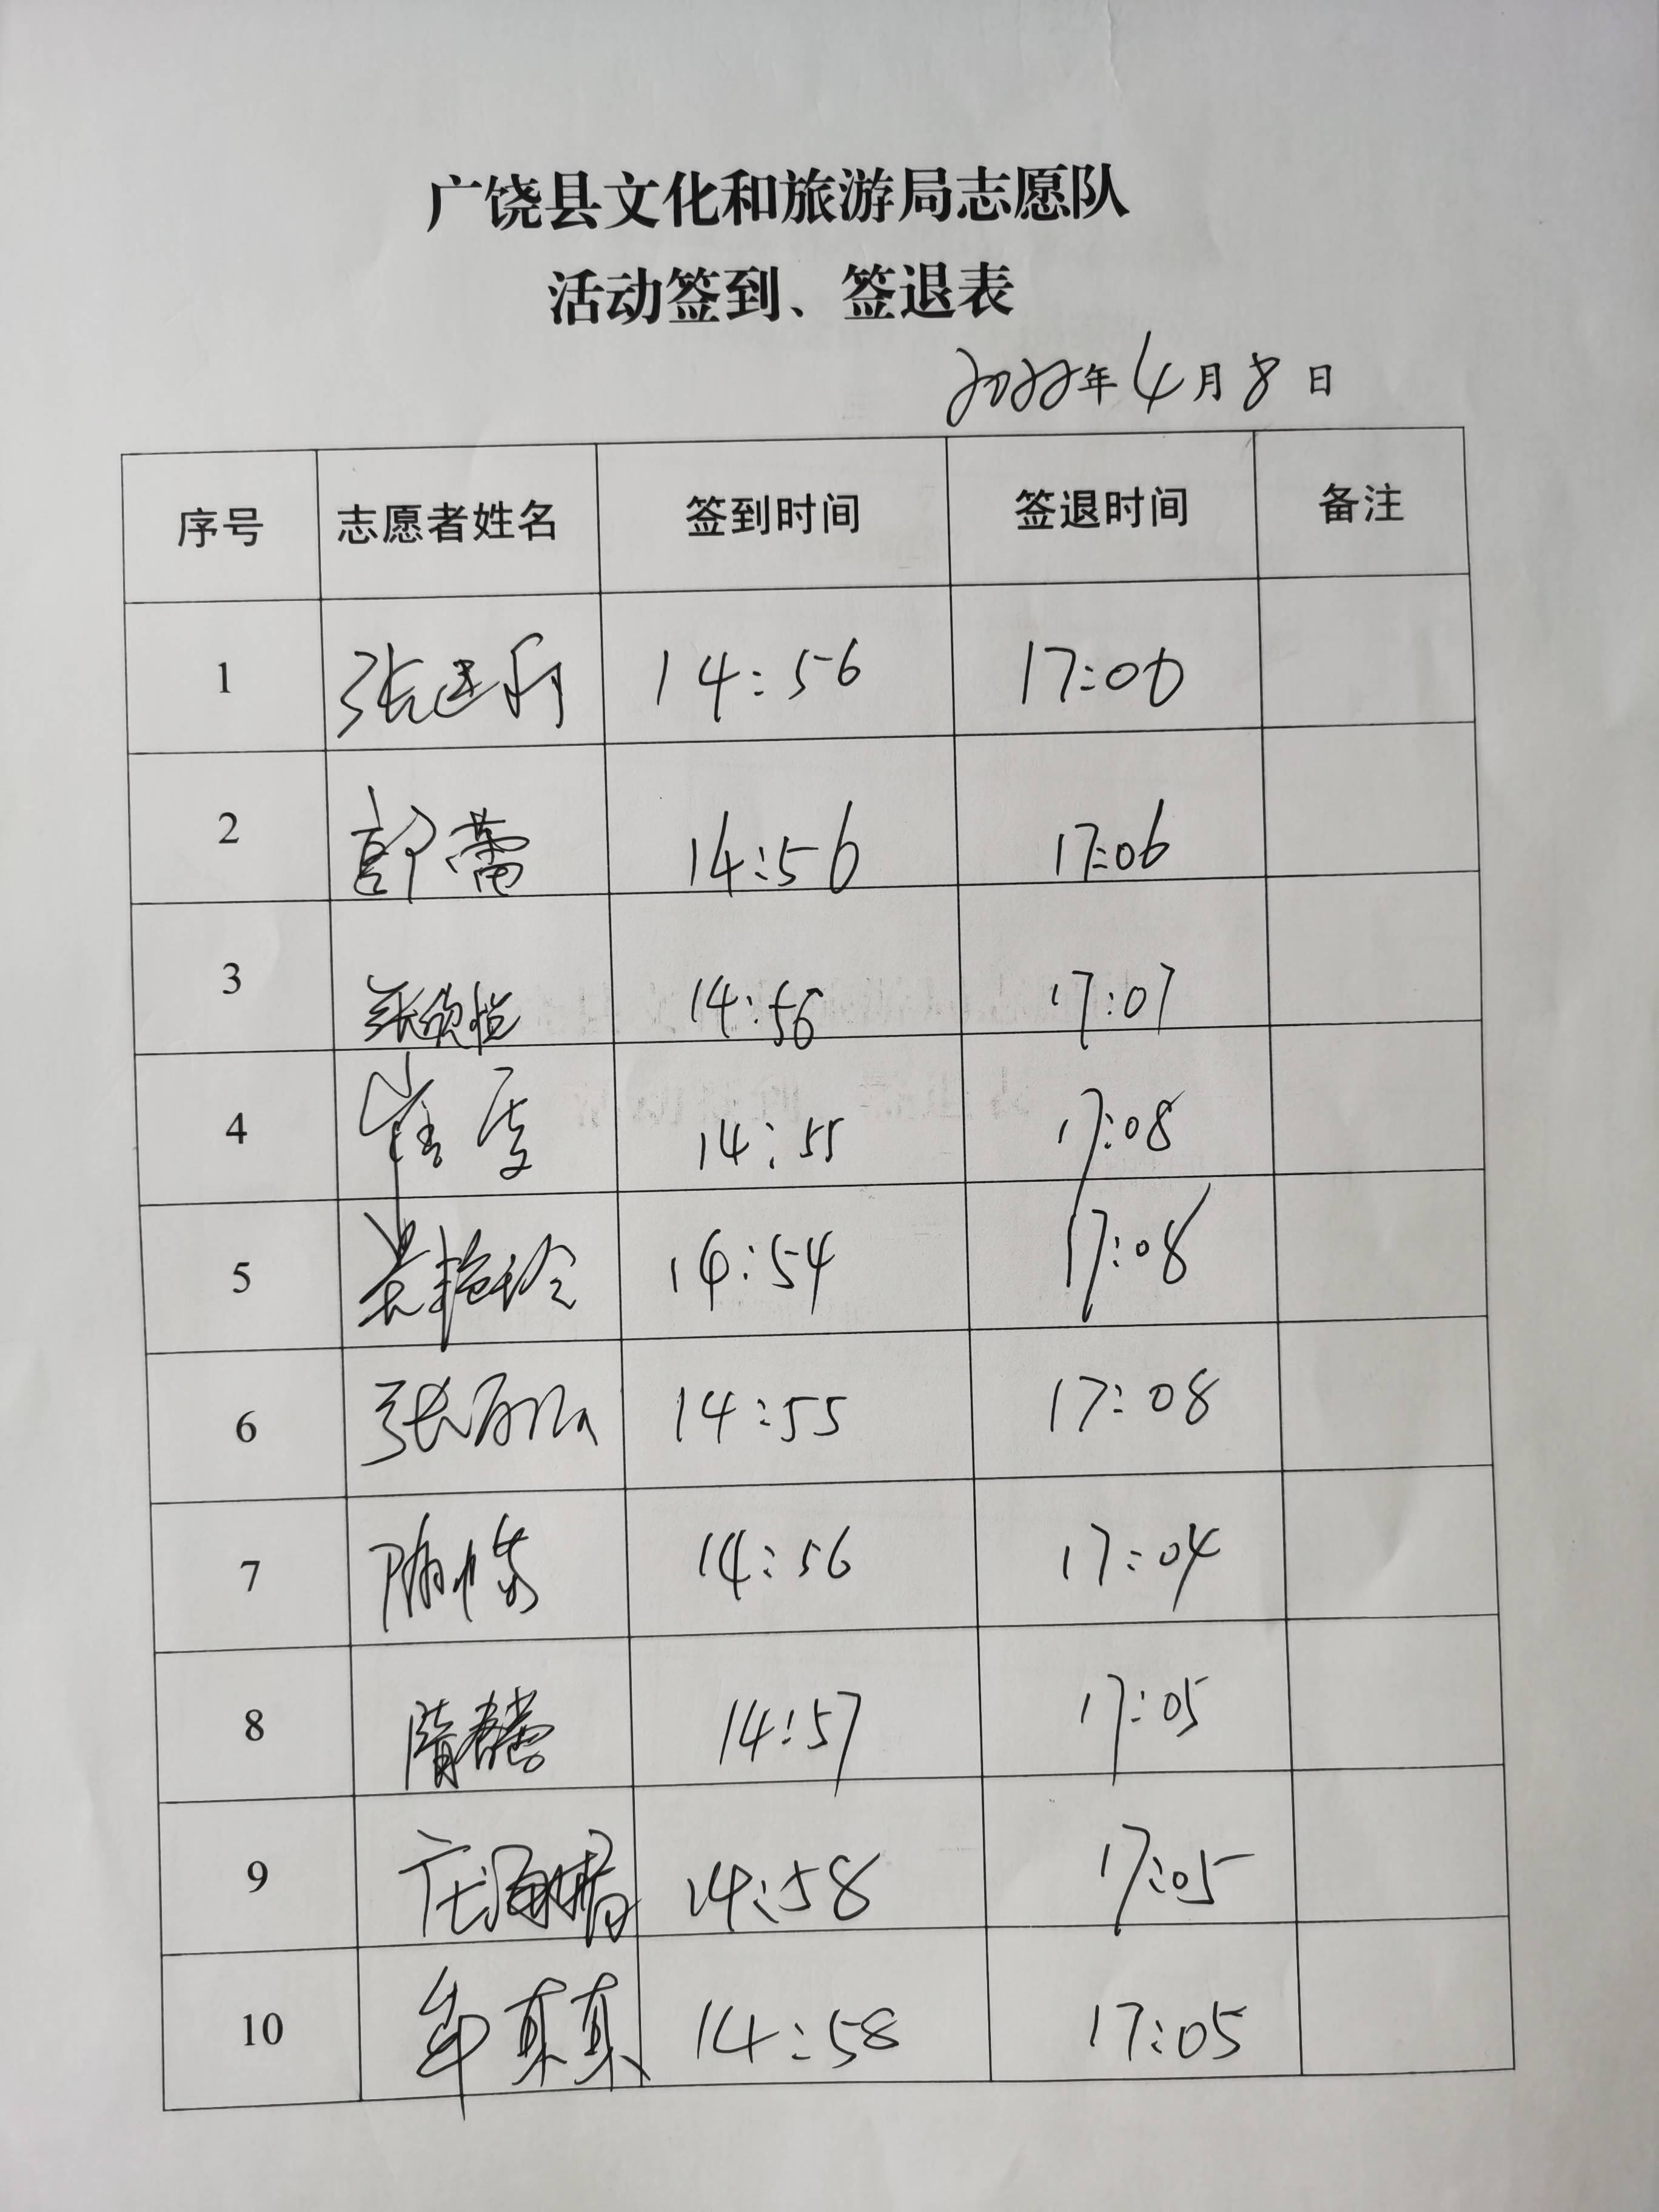 广饶县文化和旅游局志愿队
活动签到、签退表
2022年4月8日
序号 志愿者姓名 签到时间 签退时间 备注
1 张 14:56 17:00
2 郭蕾 14:56 17:06
3 张欣怡 14:56 17:07
4 崔 14:55 17:08
5 14:54 17:08
6 张 14:55 17:08
7 14:56 17:04
8 隋 14:57 17:05
9 庄 14:58 17:05
10 牟真真 14:58 17:05